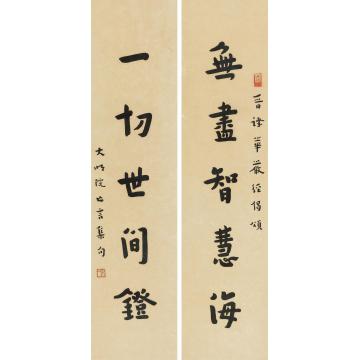 晉譯華嚴經偈頌
無盡智慧海
一切世間鐙
大明院沙言集句